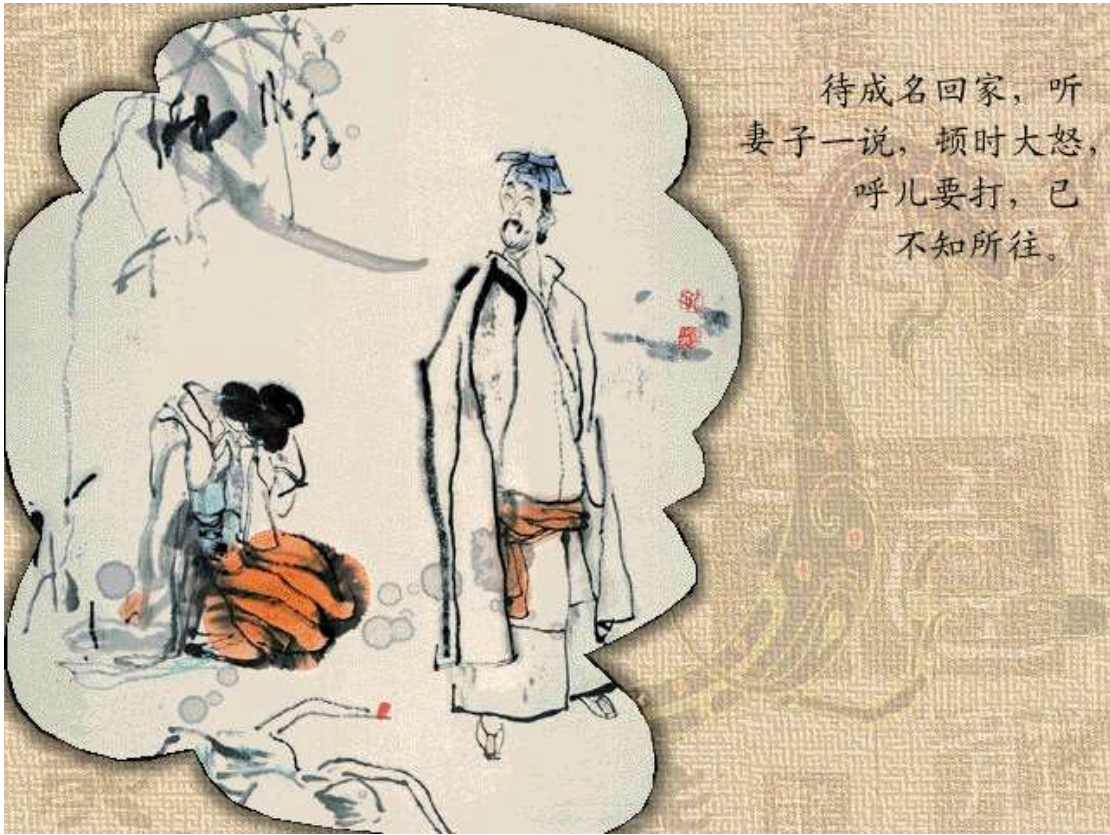 待成名回家，听
妻子一说，顿时大怒，
呼儿要打，已
不知所往。